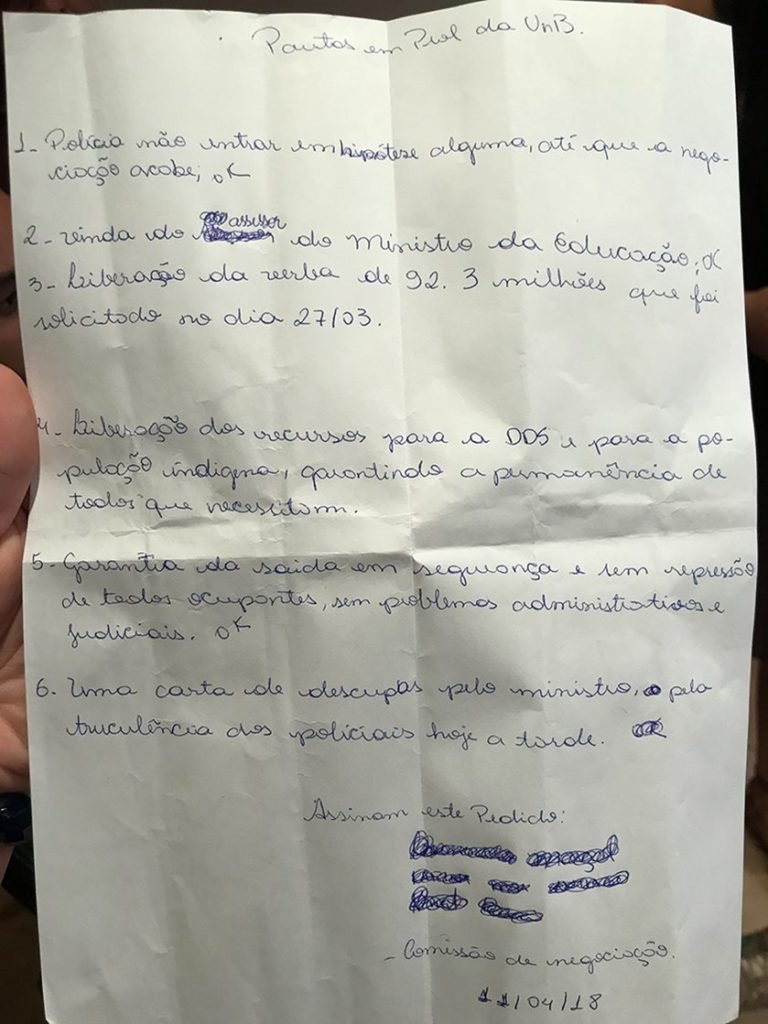 . Pautas em Prol da UnB.
1- Polícia não entrar em hipótese alguma, até que a nego-
ciação acabe; OK
assessor
2- vinda do do Ministro da Educação; OK
3- Liberação da verba de 92. 3 milhões que foi
solicitado no dia 27/03.
4- Liberação dos recursos para a DDS e para a po-
pulação indígena, garantindo a permanência de
todos que necessitam.
5- Garantia da saída em segurança e sem repressão
de todos ocupantes, sem problemas administrativos e
judiciais. OK
6- Uma carta de descupas pelo ministro, pela
truculência dos policiais hoje a tarde.
Assinam este Pedido:
- Comissão de negociação.
11/04/18